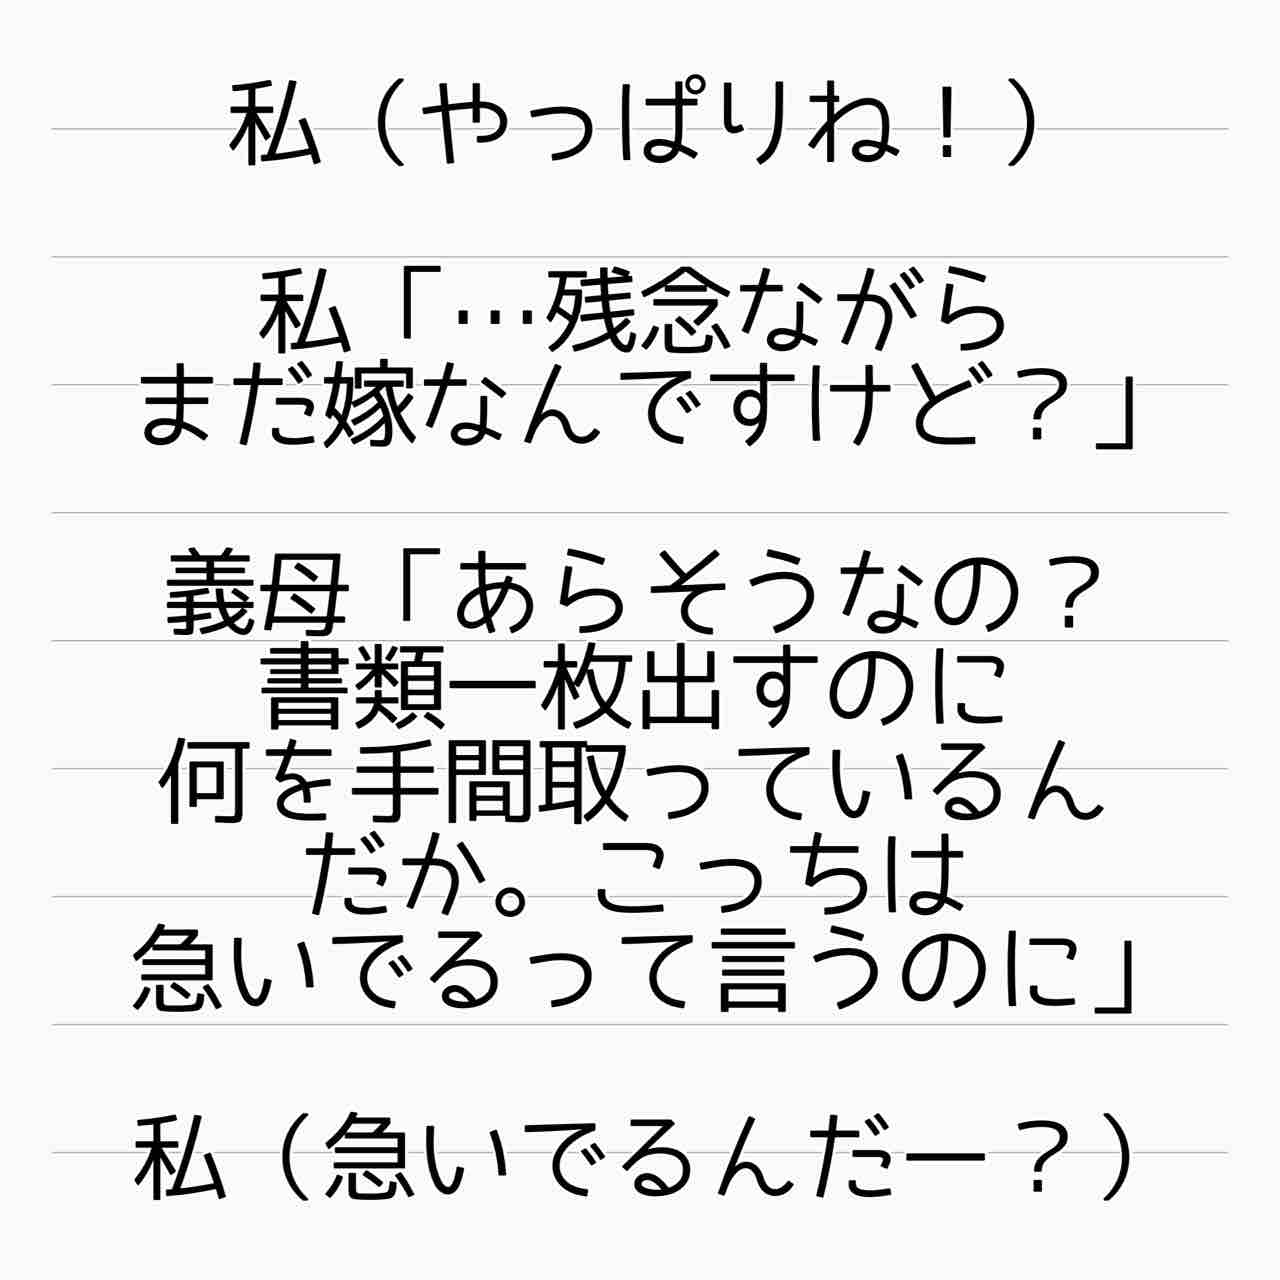 私（やっぱりね！）
私「…残念ながら
まだ嫁なんですけど？」
義母「あらそうなの？
書類一枚出すのに
何を手間取っているん
だか。こっちは
急いでるって言うのに」
私（急いでるんだー？）